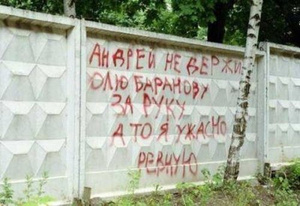 АНДРЕЙ НЕ ДЕРЖИ
ЮЛЮ БАРАНОВУ
ЗА РУКУ
А ТО Я УЖАСНО
РЕВНУЮ